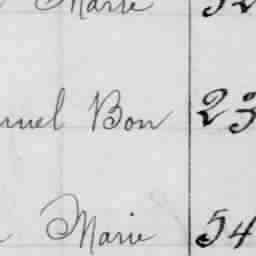 Marie 52
muel Bon 23
Marie 54